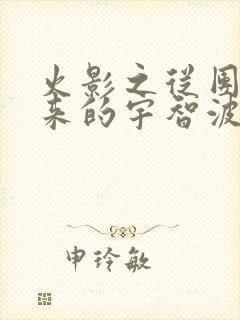 火影之從围
来的宇智波
申玲敏